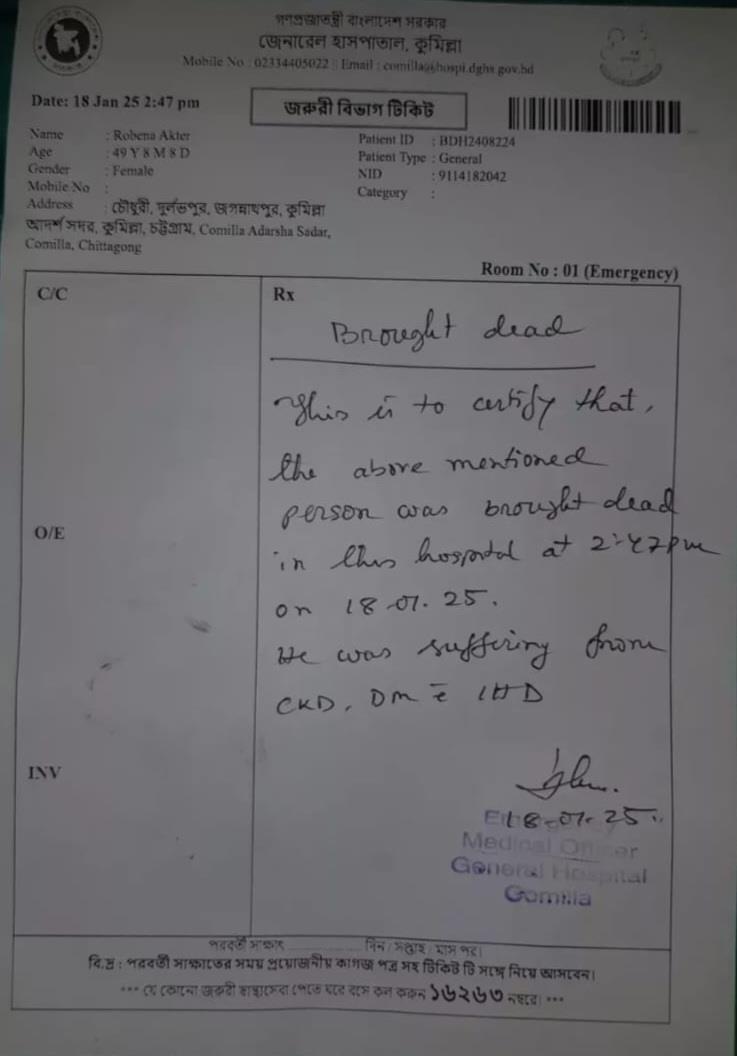 গণপ্রজাতন্ত্রী বাংলাদেশ সরকার
জেনারেল হাসপাতাল, কুমিল্লা
Mobile No : 02334405022 || Email : comilla@hospi.dghs.gov.bd
Date: 18 Jan 25 2:47 pm
জরুরী বিভাগ টিকিট
Name : Robena Akter
Age : 49 Y 8 M 8 D
Gender : Female
Mobile No :
Address : চৌধুরী, দুর্লভপুর, জগন্নাথপুর, কুমিল্লা
আদর্শ সদর, কুমিল্লা, চট্টগ্রাম, Comilla Adarsha Sadar,
Comilla, Chittagong
Patient ID : BDH2408224
Patient Type : General
NID : 9114182042
Category :
Room No : 01 (Emergency)
C/C
O/E
INV
Rx
Brought dead
This is to certify that,
the above mentioned
person was brought dead
in this hospital at 2:47pm
on 18-01-25.
He was suffering from
CKD, DM c̄ IHD
18-01-25
Emergency
Medical Officer
General Hospital
Comilla
পরবর্তী সাক্ষাৎ .................... দিন / সপ্তাহ / মাস পর।
বি.দ্র : পরবর্তী সাক্ষাতের সময় প্রয়োজনীয় কাগজ পত্র সহ টিকিট টি সঙ্গে নিয়ে আসবেন।
*** যে কোনো জরুরী স্বাস্থ্যসেবা পেতে ঘরে বসে কল করুন ১৬২৬৩ নম্বরে। ***